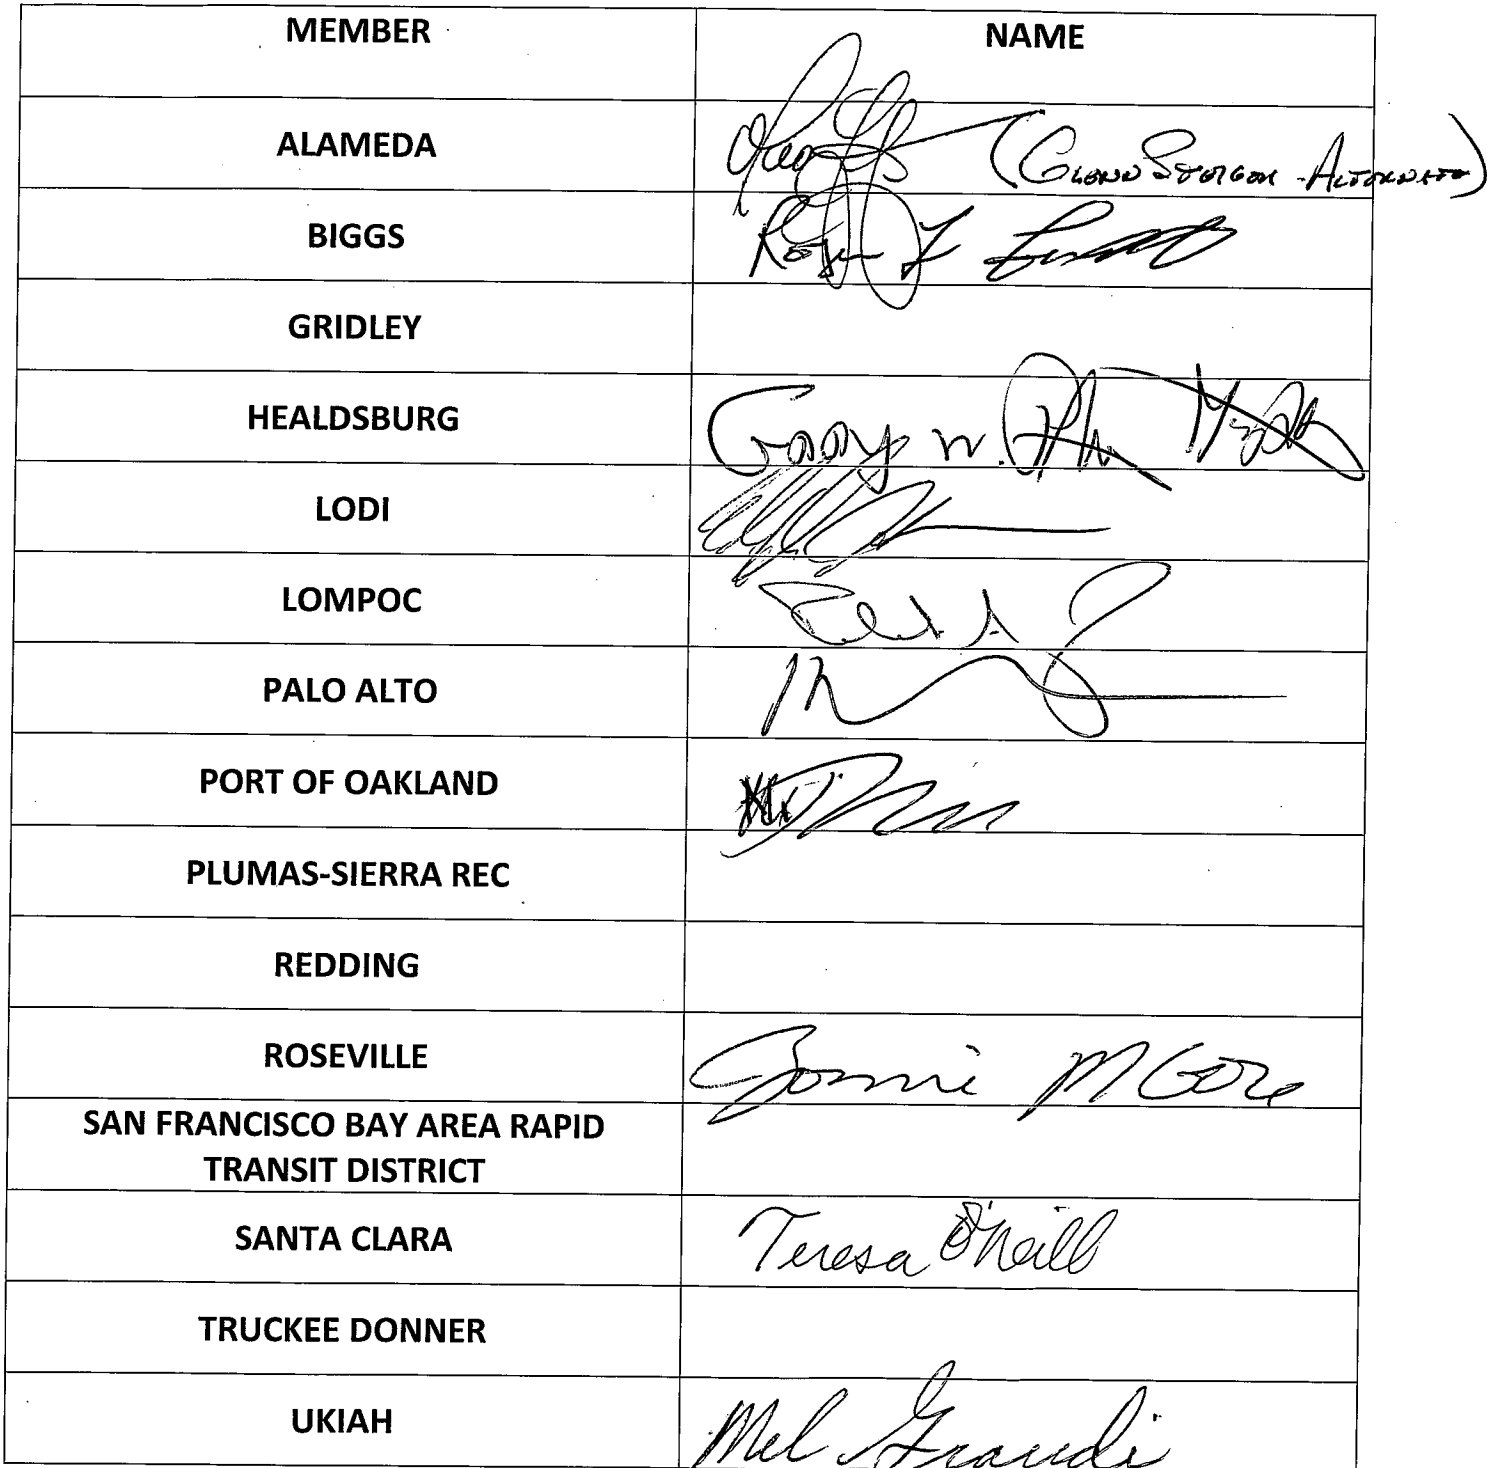 MEMBER NAME
ALAMEDA (GLENN ALTERNATE)
BIGGS Roger L
GRIDLEY
HEALDSBURG Gary W.
LODI
LOMPOC
PALO ALTO
PORT OF OAKLAND
PLUMAS-SIERRA REC
REDDING
ROSEVILLE Bonnie M Gore
SAN FRANCISCO BAY AREA RAPID
TRANSIT DISTRICT
SANTA CLARA Teresa O'Neill
TRUCKEE DONNER
UKIAH Mel Grandi